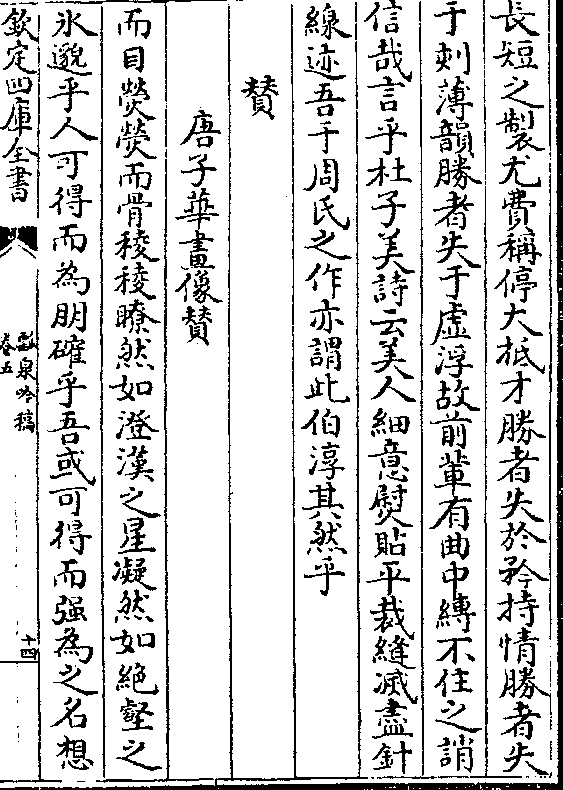 長短之製尤費稱停大抵才勝者失於矜持情勝者失
于刺薄韻勝者失于虛浮故前輩有曲中縛不住之誚
信哉言乎杜子美詩云美人細意熨貼平裁縫滅盡針
線迹吾于周氏之作亦謂此伯淳其然乎
賛
唐子華畫像賛
而目熒熒而骨稜稜瞭然如澄漢之星凝然如絶壑之
氷邈乎人可得而為朋確乎吾或可得而强為之名想
欽定四庫全書
瓢泉吟稿
卷五
十四